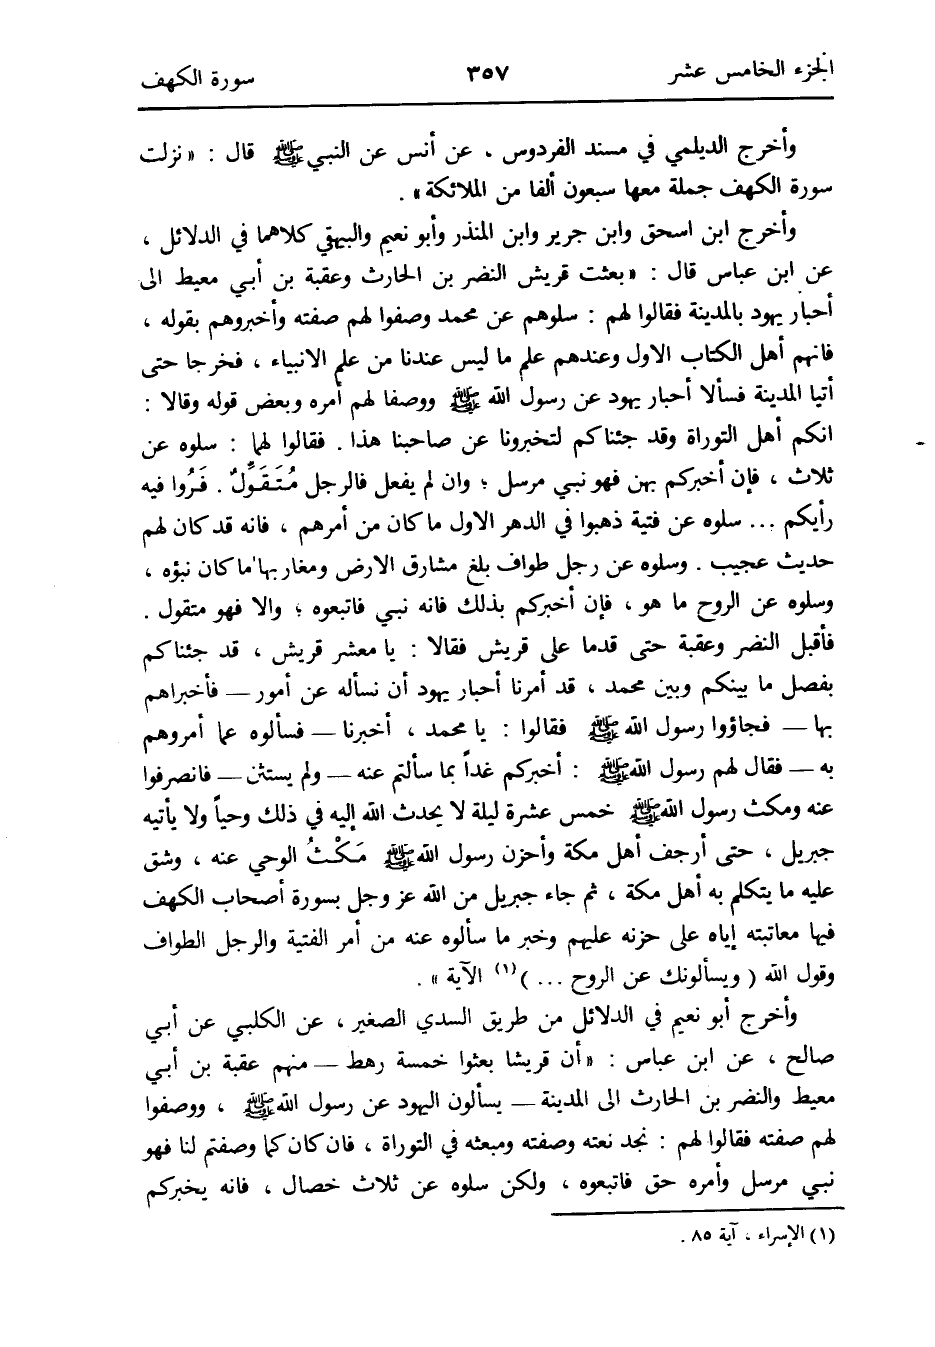 الجزء الخامس عشر ٣٥٧ سورة الكهف
وأخرج الديلمي في مسند الفردوس ، عن أنس عن النبي ﷺ قال : « نزلت
سورة الكهف جملة معها سبعون ألفا من الملائكة » .
وأخرج ابن اسحق وابن جرير وابن المنذر وأبو نعيم والبيهقي كلاهما في الدلائل ،
عن ابن عباس قال : « بعثت قريش النضر بن الحارث وعقبة بن أبي معيط الى
أحبار يهود بالمدينة فقالوا لهم : سلوهم عن محمد وصفوا لهم صفته وأخبروهم بقوله ،
فانهم أهل الكتاب الاول وعندهم علم ما ليس عندنا من علم الانبياء ، فخرجا حتى
أتيا المدينة فسألا أحبار يهود عن رسول الله ﷺ ووصفا لهم أمره وبعض قوله وقالا :
انكم أهل التوراة وقد جئناكم لتخبرونا عن صاحبنا هذا . فقالوا لهما : سلوه عن
ثلاث ، فإن أخبركم بهن فهو نبي مرسل ؛ وان لم يفعل فالرجل مُتَقَوِّلٌ . فَرُوا فيه
رأيكم ... سلوه عن فتية ذهبوا في الدهر الاول ما كان من أمرهم ، فانه قد كان لهم
حديث عجيب . وسلوه عن رجل طواف بلغ مشارق الارض ومغاربها ما كان نبؤه ،
وسلوه عن الروح ما هو ، فإن أخبركم بذلك فانه نبي فاتبعوه ؛ والا فهو متقول .
فأقبل النضر وعقبة حتى قدما على قريش فقالا : يا معشر قريش ، قد جئناكم
بفصل ما بينكم وبين محمد ، قد أمرنا أحبار يهود أن نسأله عن أمور — فأخبراهم
بها — فجاؤوا رسول الله ﷺ فقالوا : يا محمد ، أخبرنا — فسألوه عما أمروهم
به — فقال لهم رسول الله ﷺ : أخبركم غداً بما سألتم عنه — ولم يستثن — فانصرفوا
عنه ومكث رسول الله ﷺ خمس عشرة ليلة لا يحدث الله إليه في ذلك وحياً ولا يأتيه
جبريل ، حتى أرجف أهل مكة وأحزن رسول الله ﷺ مَكْثُ الوحي عنه ، وشق
عليه ما يتكلم به أهل مكة ، ثم جاء جبريل من الله عز وجل بسورة أصحاب الكهف
فيها معاتبته إياه على حزنه عليهم وخبر ما سألوه عنه من أمر الفتية والرجل الطواف
وقول الله ( ويسألونك عن الروح ... )(١) الآية » .
وأخرج أبو نعيم في الدلائل من طريق السدي الصغير ، عن الكلبي عن أبي
صالح ، عن ابن عباس : « أن قريشا بعثوا خمسة رهط — منهم عقبة بن أبي
معيط والنضر بن الحارث الى المدينة — يسألون اليهود عن رسول الله ﷺ ، ووصفوا
لهم صفته فقالوا لهم : نجد نعته وصفته ومبعثه في التوراة ، فان كان كما وصفتم لنا فهو
نبي مرسل وأمره حق فاتبعوه ، ولكن سلوه عن ثلاث خصال ، فانه يخبركم
(١) الإسراء ، آية ٨٥ .